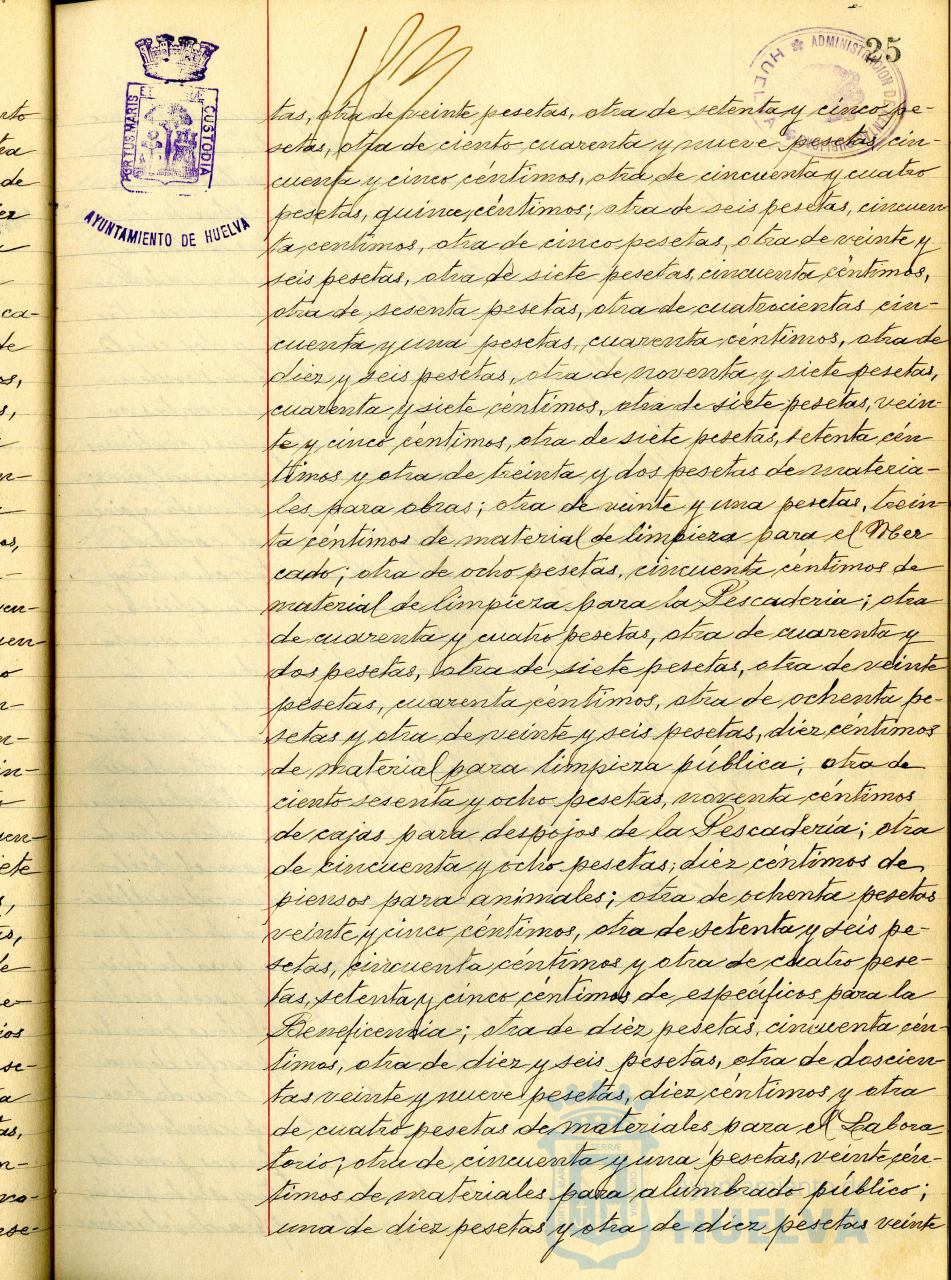 25
PORTUS MARIS
ET TERRÆ
CUSTODIA
AYUNTAMIENTO DE HUELVA
ADMINISTRACION DE
HUELVA
tas, otra de veinte pesetas, otra de setenta y cinco pe-
setas, otra de ciento cuarenta y nueve pesetas, cin-
cuenta y cinco céntimos, otra de cincuenta y cuatro
pesetas, quince céntimos; otra de seis pesetas, cincuen
ta centimos, otra de cinco pesetas, otra de veinte y
seis pesetas, otra de siete pesetas, cincuenta céntimos,
otra de sesenta pesetas, otra de cuatrocientas cin-
cuenta y una pesetas, cuarenta céntimos, otra de
diez y seis pesetas, otra de noventa y siete pesetas,
cuarenta y siete céntimos, otra de siete pesetas, vein-
te y cinco céntimos, otra de siete pesetas, setenta cén
timos y otra de treinta y dos pesetas de materia-
les para obras; otra de veinte y una pesetas, trein-
ta céntimos de material de limpieza para el Mer
cado; otra de ocho pesetas, cincuenta céntimos de
material de limpieza para la Pescaderia; otra
de cuarenta y cuatro pesetas, otra de cuarenta y
dos pesetas, otra de siete pesetas, otra de veinte
pesetas, cuarenta céntimos, otra de ochenta pe-
setas y otra de veinte y seis pesetas, diez céntimos
de material para limpieza pública; otra de
ciento sesenta y ocho pesetas, noventa céntimos
de cajas para despojos de la Pescadería; otra
de cincuenta y ocho pesetas, diez céntimos de
piensos para animales; otra de ochenta pesetas
veinte y cinco céntimos, otra de setenta y seis pe-
setas, cincuenta céntimos y otra de cuatro pese-
tas, setenta y cinco céntimos de específicos para la
Beneficencia; otra de diez pesetas, cincuenta cén-
timos, otra de diez y seis pesetas, otra de doscien-
tas veinte y nueve pesetas, diez céntimos y otra
de cuatro pesetas de materiales para el Labora-
torio; otra de cincuenta y una pesetas, veinte cén-
timos de materiales para alumbrado público;
una de diez pesetas y otra de diez pesetas veinte
ayuntamiento de
HUELVA